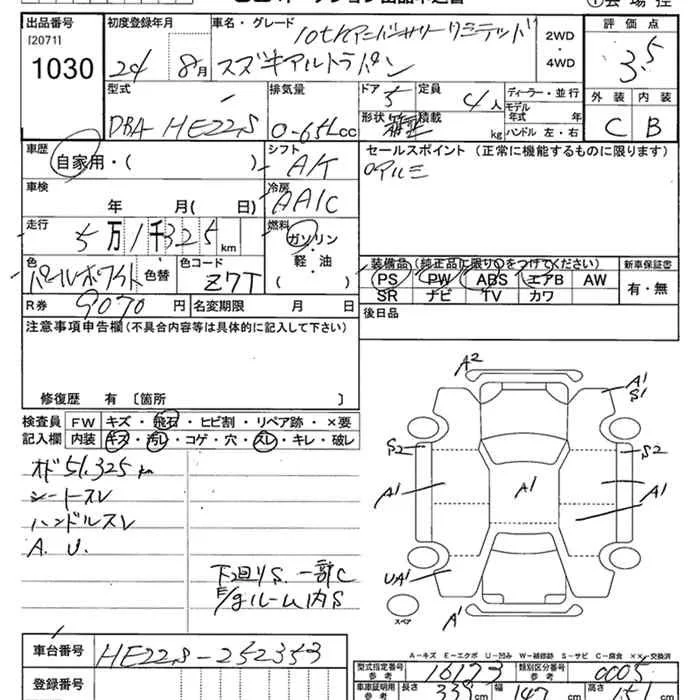 出品番号
[2071]
1030
初度登録年月
24
8月
車名・グレード
10thアニバーサリーリミテッド
スズキアルトラパン
2WD
・
4WD
評価点
3.5
外装
内装
C
B
型式
DBA HE22S
排気量
0-65L cc
ドア
5
定員
4人
ディーラー・並行
モデル
年式 年
形状
積載
kg
ハンドル 左・右
車歴
自家用・( )
シフト
AT
セールスポイント (正常に機能するものに限ります)
アルミ
車検
年 月( 日)
冷房
AAC
走行
5万1千325km
燃料
ガソリン
・
軽・油
( )
色
パールホワイト
色替
色コード
Z7T
装備品(純正品に限り○をつけてください)
新車保証書
PS
PW
ABS
エアB
AW
有・無
SR
ナビ
TV
カワ
R券
9070円
名変期限 月 日
後日品
注意事項申告欄(不具合内容等は具体的に記入して下さい)
修復歴 有 〔箇所 〕
検査員
記入欄
FW
キズ・飛石・ヒビ割・リペア跡・×要
内装
キズ・汚レ・コゲ・穴・スレ・キレ・破レ
オド51,325km
シートスレ
ハンドルスレ
A.U.
下回りS.一部C
E/gルーム内S
A2
A1
S1
S2
S2
A1
A1
A1
UA1
A1
スペア
A-キズ E-エクボ U-凹み W-補修跡 S-サビ C-腐食 ××-交換済
車台番号
HE22S-252353
登録番号
型式指定番号
参考
16173
類別区分番号
参考
0005
車庫証明用
参考
長さ
339
幅
147
高さ